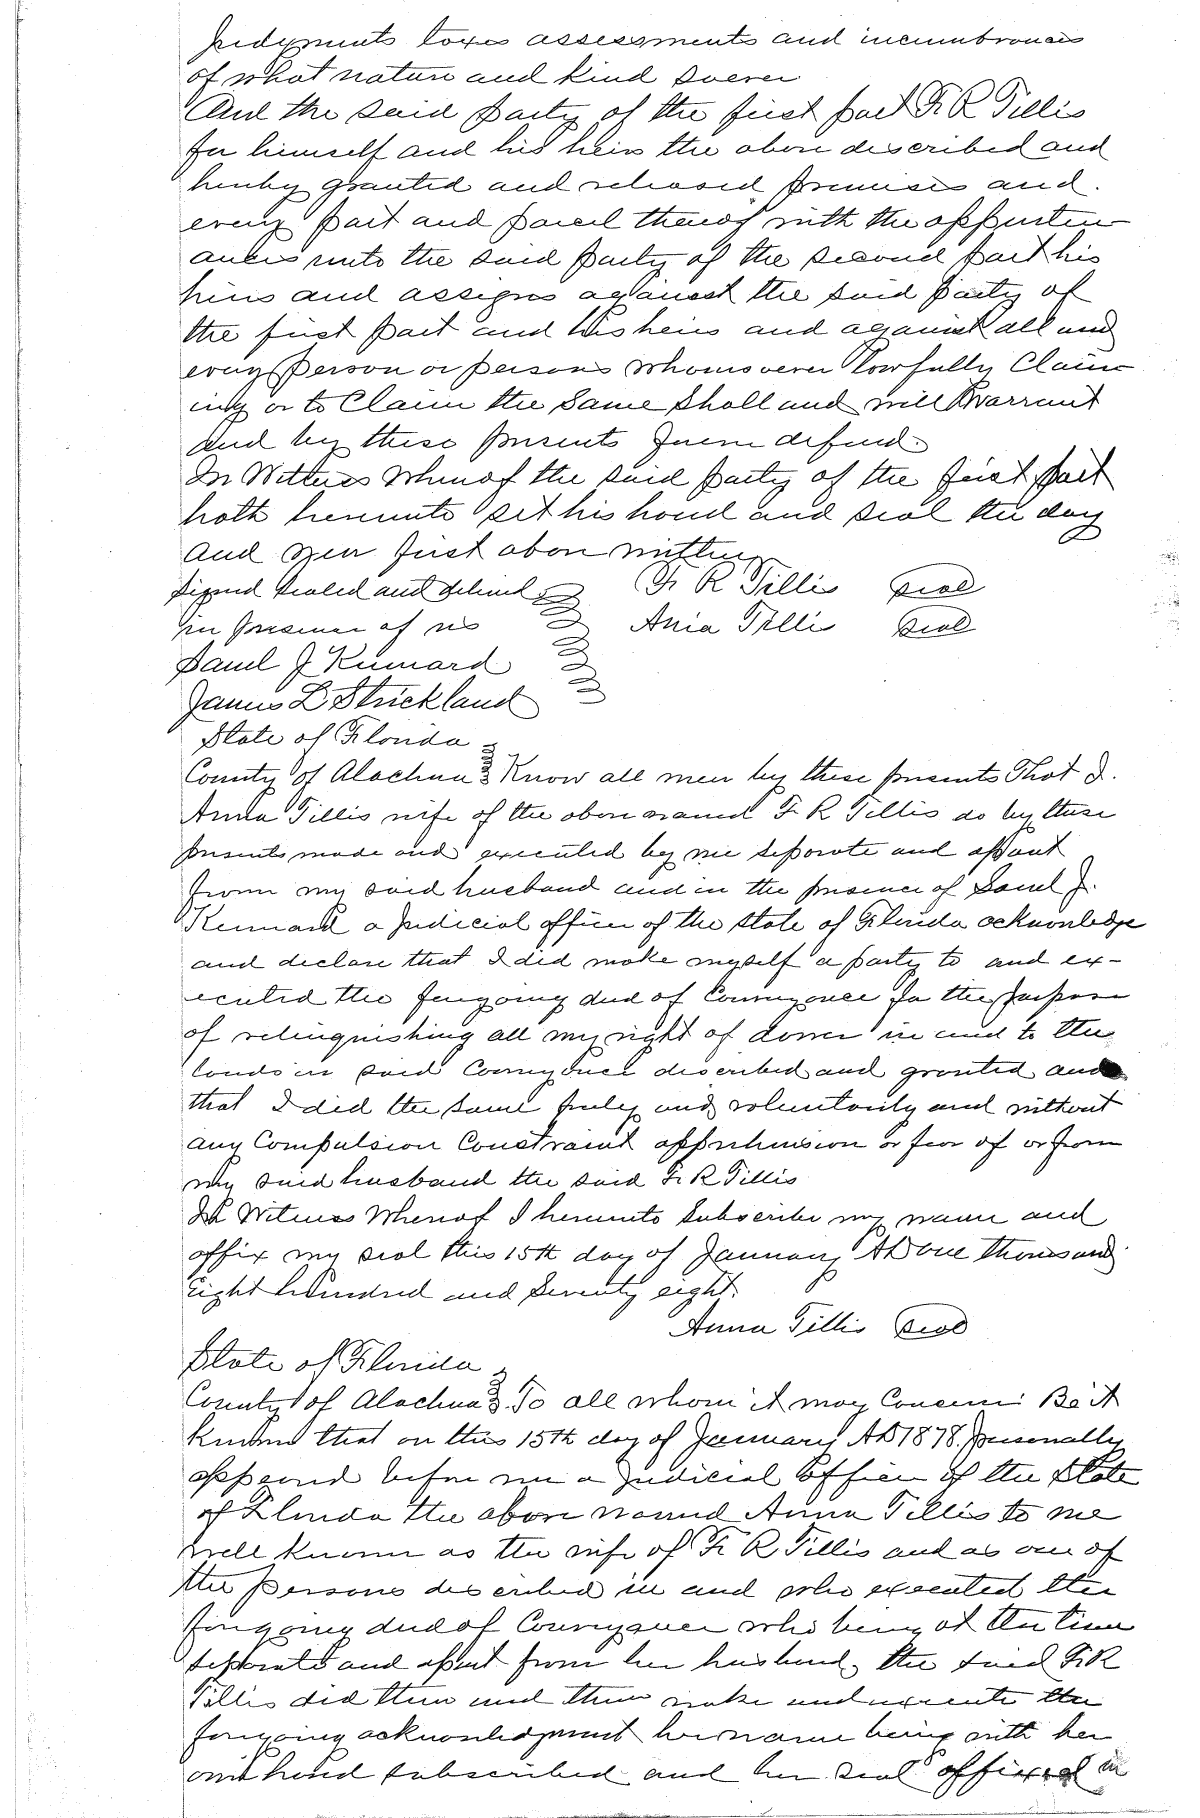 Judgments taxes assessments and incumbrances
of what nature and kind soever
And the said party of the first part F. R Tillis
for himself and his heirs the above described and
hereby granted and released premises and
every part and parcel thereof with the appurten
ances unto the said party of the second part his
heirs and assigns against the said party of
the first part and his heirs and against all and
every person or persons whomsoever lawfully Claim
ing or to Claim the Same Shall and will Warrant
and by these presents forever defend.
In Witness Whereof the said party of the first part
hath hereunto set his hand and seal the day
and year first above written
Signed Sealed and delivered F R Tillis Seal
in presence of us Ania Tillis Seal
Saml J Kennard
James D Strickland
State of Florida
County of Alachua Know all men by these presents That I.
Anna Tillis wife of the above named F. R Tillis do by these
presents made and executed by me separate and apart
from my said husband and in the presence of Saml J.
Kennard a judicial officer of the State of Florida acknowledge
and declare that I did make myself a party to and ex-
ecuted the foregoing deed of Conveyance for the purpose
of relinquishing all my right of dower in and to the
lands in said Conveyance described and granted and
that I did the same freely and voluntarily and without
any Compulsion Constraint apprehension or fear of or from
my said husband the said F. R Tillis
In Witness Whereof I hereunto Subscribe my name and
affix my seal this 15th day of January AD One thousand
Eight hundred and Seventy eight.
Anna Tillis Seal
State of Florida
County of Alachua To all whom it may Concern Be it
Known that on this 15th day of January AD 1878 personally
appeared before me a Judicial Officer of the State
of Florida the above named Anna Tillis to me
well known as the wife of F. R Tillis and as one of
the persons described in and who executed the
foregoing deed of Conveyance who being at the time
separate and apart from her husband, the said F. R
Tillis did then and there make and execute the
foregoing acknowledgment her name being with her
own hand subscribed and her seal affixed in